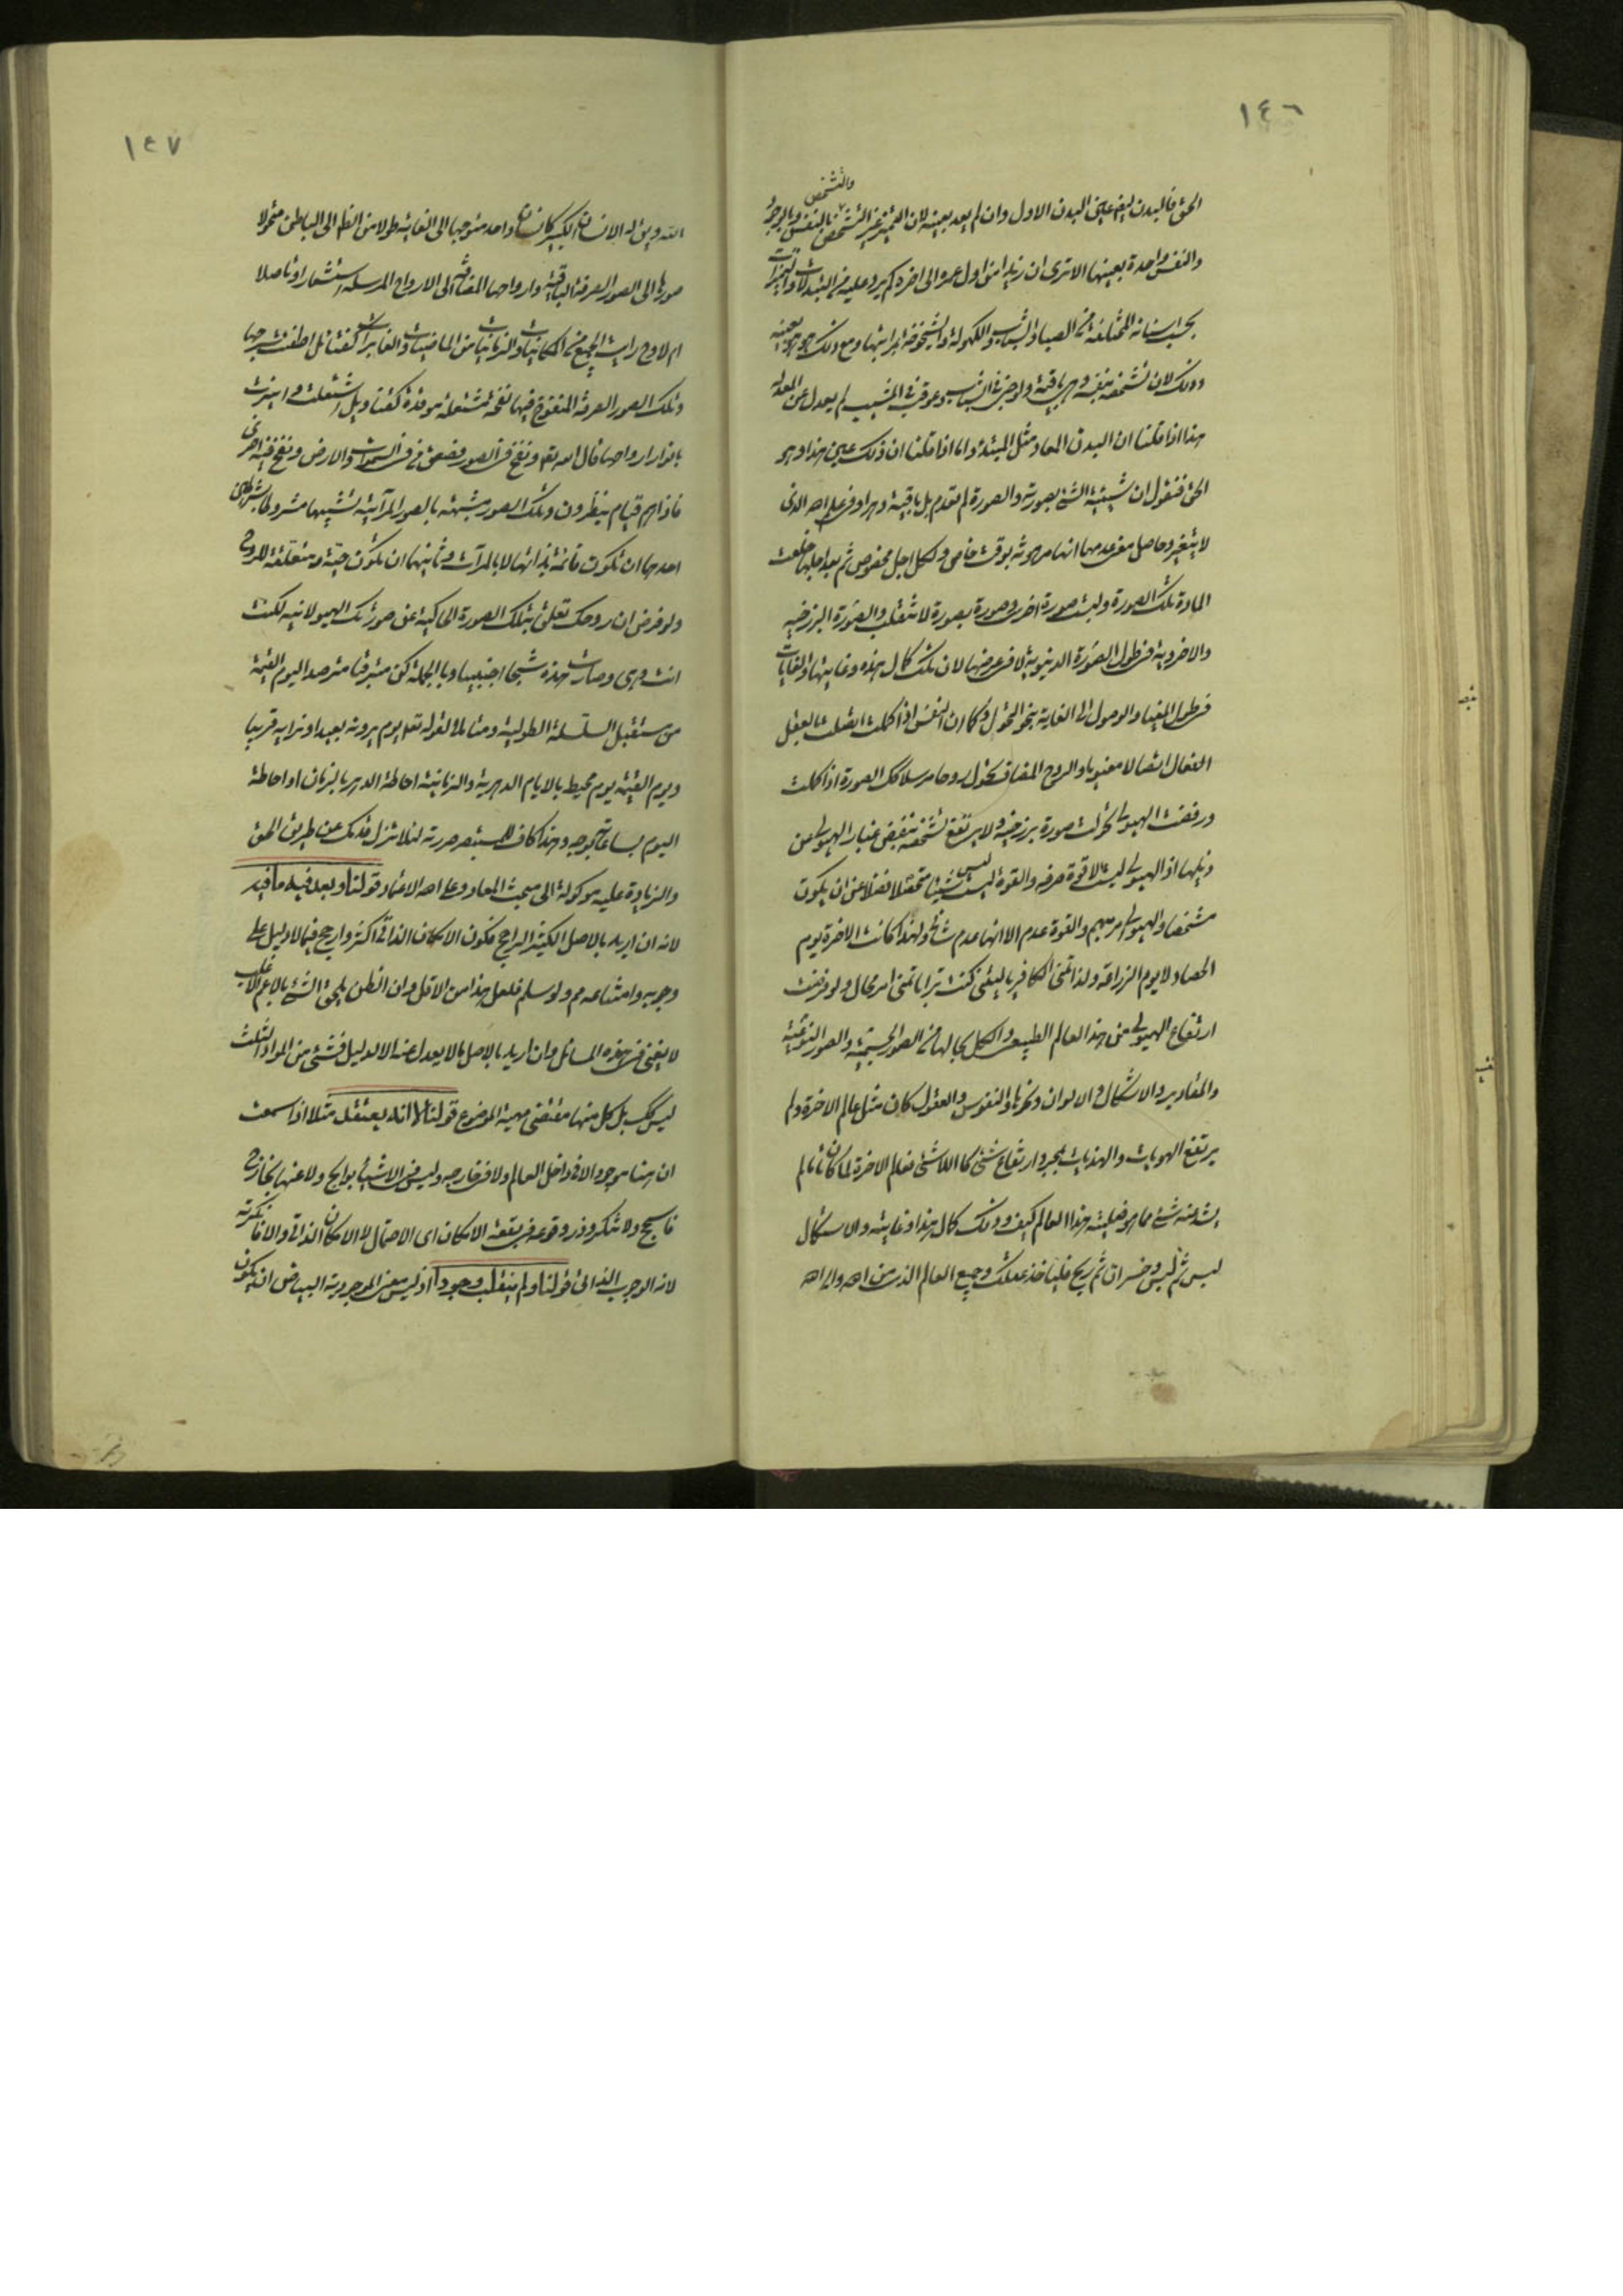 ١٤٦
والتشخص
الحق فالبدن ايضا عين البدن الاول وان لم يعد بعينه لان التميز غير التشخص بالنفس وبالوجود
والنفس واحدة بعينها الا ترى ان زيدا من اول عمره الى اخره كم يرد عليه من التبدلات والتميزات
بحسب اسنانه المختلفة من الصبا والشباب والكهولة والشيخوخة ومراتبها ومع ذلك هو هو بعينه
وذلك لان تشخصه بنفسه وهي باقية ولو جنى في الشباب وعوقب في المشيب لم يعدل عن المعدلة
هذا اذا قلنا ان البدن المعاد مثل المبتدء واما اذا قلنا ان ذلك عين هذا وهو
الحق فنقول ان شيئية الشئ بصورته والصورة لم تعدم بل باقية وهو في علم الله الذى
لا يتغير وحاصل معنى عدمها انها مرهونة بوقت خاص ولكل اجل مخصوص ثم بعد اجلها خلعت
المادة تلك الصورة ولبست صورة اخرى وصورة بصورة لا تنقلب والصورة البرزخية
والاخروية في طول الصورة الدنيوية لا في عرضها لان تلك كمال هذه وغايتها والغايات
في طول المغيا والوصول الى الغاية بنحو التحول وكما ان النفس اذا كملت اتصلت بالعقل
الفعال اتصالا معنويا والروح المضاف تحول روحا مرسلا تلك الصورة اذا كملت
ورفضت الهيولى تحولت صورة برزخية ولا يرتفع تشخصه بنفض غبار الهيولى عن
ذيلها اذ الهيولى ليست الا قوة صرفة والقوة ليست شيئا متحصلا فضلا عن ان يكون
مشخصا والهيولى امر مبهم والقوة عدم الا انها عدم شانى ولهذا كانت الاخرة يوم
الحصاد لا يوم الزراعة ولذا تمنى الكافر يا ليتنى كنت ترابا تمنى امر محال ولو فرضت
ارتفاع الهيولى عن هذا العالم الطبيعى والكل بحالها من الصور الجسمية والصور النوعية
والمقادير والاشكال والالوان ونحوها والنفوس والعقول كان مثل عالم الاخرة ولم
يرتفع الهويات والهذيات بمجرد ارتفاع شئ كاللاشئ فعالم الاخرة لما كان تاما لم
يشذ عنه شئ مما هو فعلية هذا العالم كيف وذلك كمال هذا وغايته والاستكمال
لبس ثم لبس وخسران ثم ربح فلياخذ عقلك جميع العالم الذى من الله والى الله
١٤٧
الله ويق له الانسان الكبير كانسان واحد متوجها الى الغاية طولا من الظاهر الى الباطن متحولا
صورها الى الصور الصرفة الباقية وارواحها المضافة الى الارواح المرسلة استشعارا وتاصلا
ام لا وح رايت الجميع من المكانيات والزمانيات من الماضيات والغابرات كفتائل اطفئت سرجها
وتلك الصور الصرفة المنفوخ فيها نفخة مشتعلة موقدة كفتائل اشتعلت واستنرت
بانوار ارواحها قال الله تعالى ونفخ في الصور فصعق من في السموات والارض ونفخ فيه اخرى
فاذا هم قيام ينظرون وتلك الصور مشبهة بالصور المرآتية تشبيها مشروطا بشرطين
احدهما ان تكون قائمة بذاتها لا بالمرآت وثانيهما ان تكون حية ومتعلقة للروح
ولو فرض ان روحك تعلق بتلك الصورة الحاكية عن صورتك الهيولانية لكنت
انت هى وصارت هذه شبحا اجنبيا وبالجملة كن مشرفا مترصدا ليوم القيمة
من مستقبل السلسلة الطولية ومتاملا لقوله تعالى يوم يرونه بعيدا ونراه قريبا
ويوم القيمة يوم محيط بالايام الدهرية والزمانية احاطة الدهر بالزمان او احاطة
اليوم بساعاته بوجه وهذا كاف للمستبصر حررته لئلا تزل قدمك عن طريق الحق
والزيادة عليه موكولة الى مبحث المعاد وعلى الله الاعتماد قولنا وبعد فيه ما فيه
لانه ان اريد بالاصل الكثير الراجح فكون الامكان الذاتى اكثر وارجح فيما لا دليل على
وجوبه وامتناعه مم ولو سلم فلعل هذا من الاقل وان الظن يلحق الشئ بالاعم الاغلب
لا يغنى في هذه المسائل وان اريد بالاصل ما لا يعدل عنه الا لدليل فشئ من المواد الثلث
ليس كك بل كل منها مقتضى مهية الموضوع قولنا لا انه يعتقد مثلا اذا سمعت
ان هنا موجودا لا في داخل العالم ولا في خارجه وليس في الاشياء بوالج ولا عنها بخارج
فاسجح ولا تنكر وذر وقوعه في بقعة الامكان اى الاحتمال لا الامكان الذاتى والا فانكرته
لانه الوجوب الذاتى قولنا ولم ينقلب وجودا اذ ليس معنى الموجودية البياض ان يكون